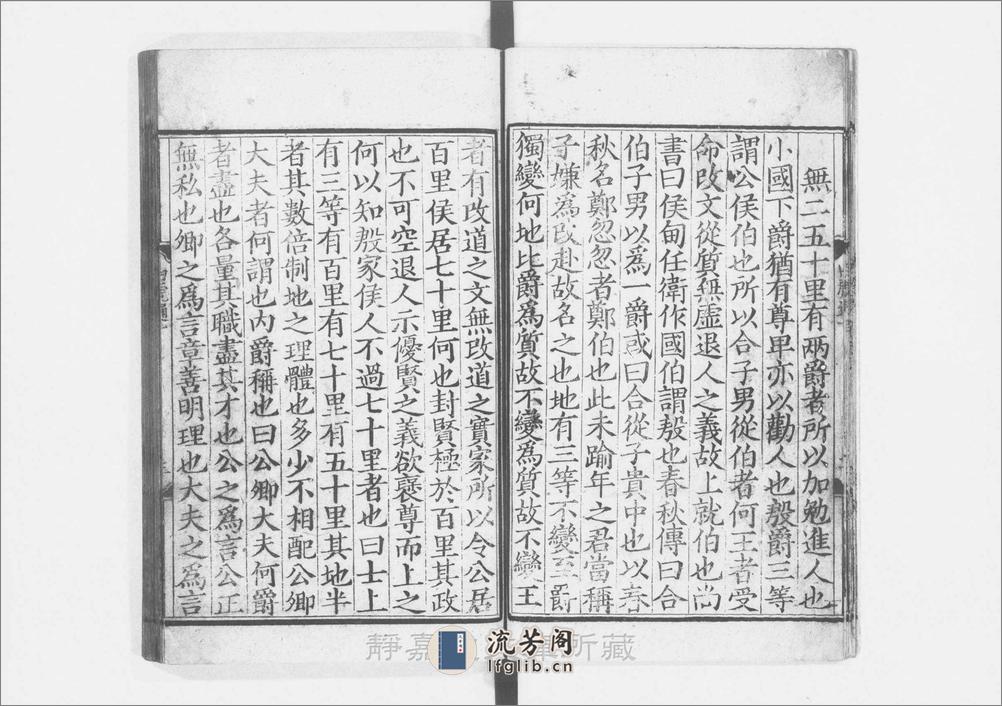 無二五十里有兩爵者所以加勉進人也
小國下爵猶有尊卑亦以勸人也殷爵三等
謂公侯伯也所以合子男從伯者何王者受
命改文從質無虛退人之義故上就伯也尚
書曰侯甸任衛作國伯謂殷也春秋傳曰合
伯子男以為一爵或曰合從子貴中也以春
秋名鄭忽忽者鄭伯也此未踰年之君當稱
子嫌為改赴故名之也地有三等不變至爵
獨變何地比爵為質故不變為質故不變王
者有改道之文無改道之實家所以令公居
百里侯居七十里何也封賢極於百里其政
也不可空退人示優賢之義欲襃尊而上之
何以知殷家侯人不過七十里者也曰士上
有三等有百里有七十里有五十里其地半
者其數倍制地之理體也多少不相配公卿
大夫者何謂也內爵稱也曰公卿大夫何爵
者盡也各量其職盡其才也公之為言公正
無私也卿之為言章善明理也大夫之為言
靜嘉
所藏
流芳阁
lfglib.cn